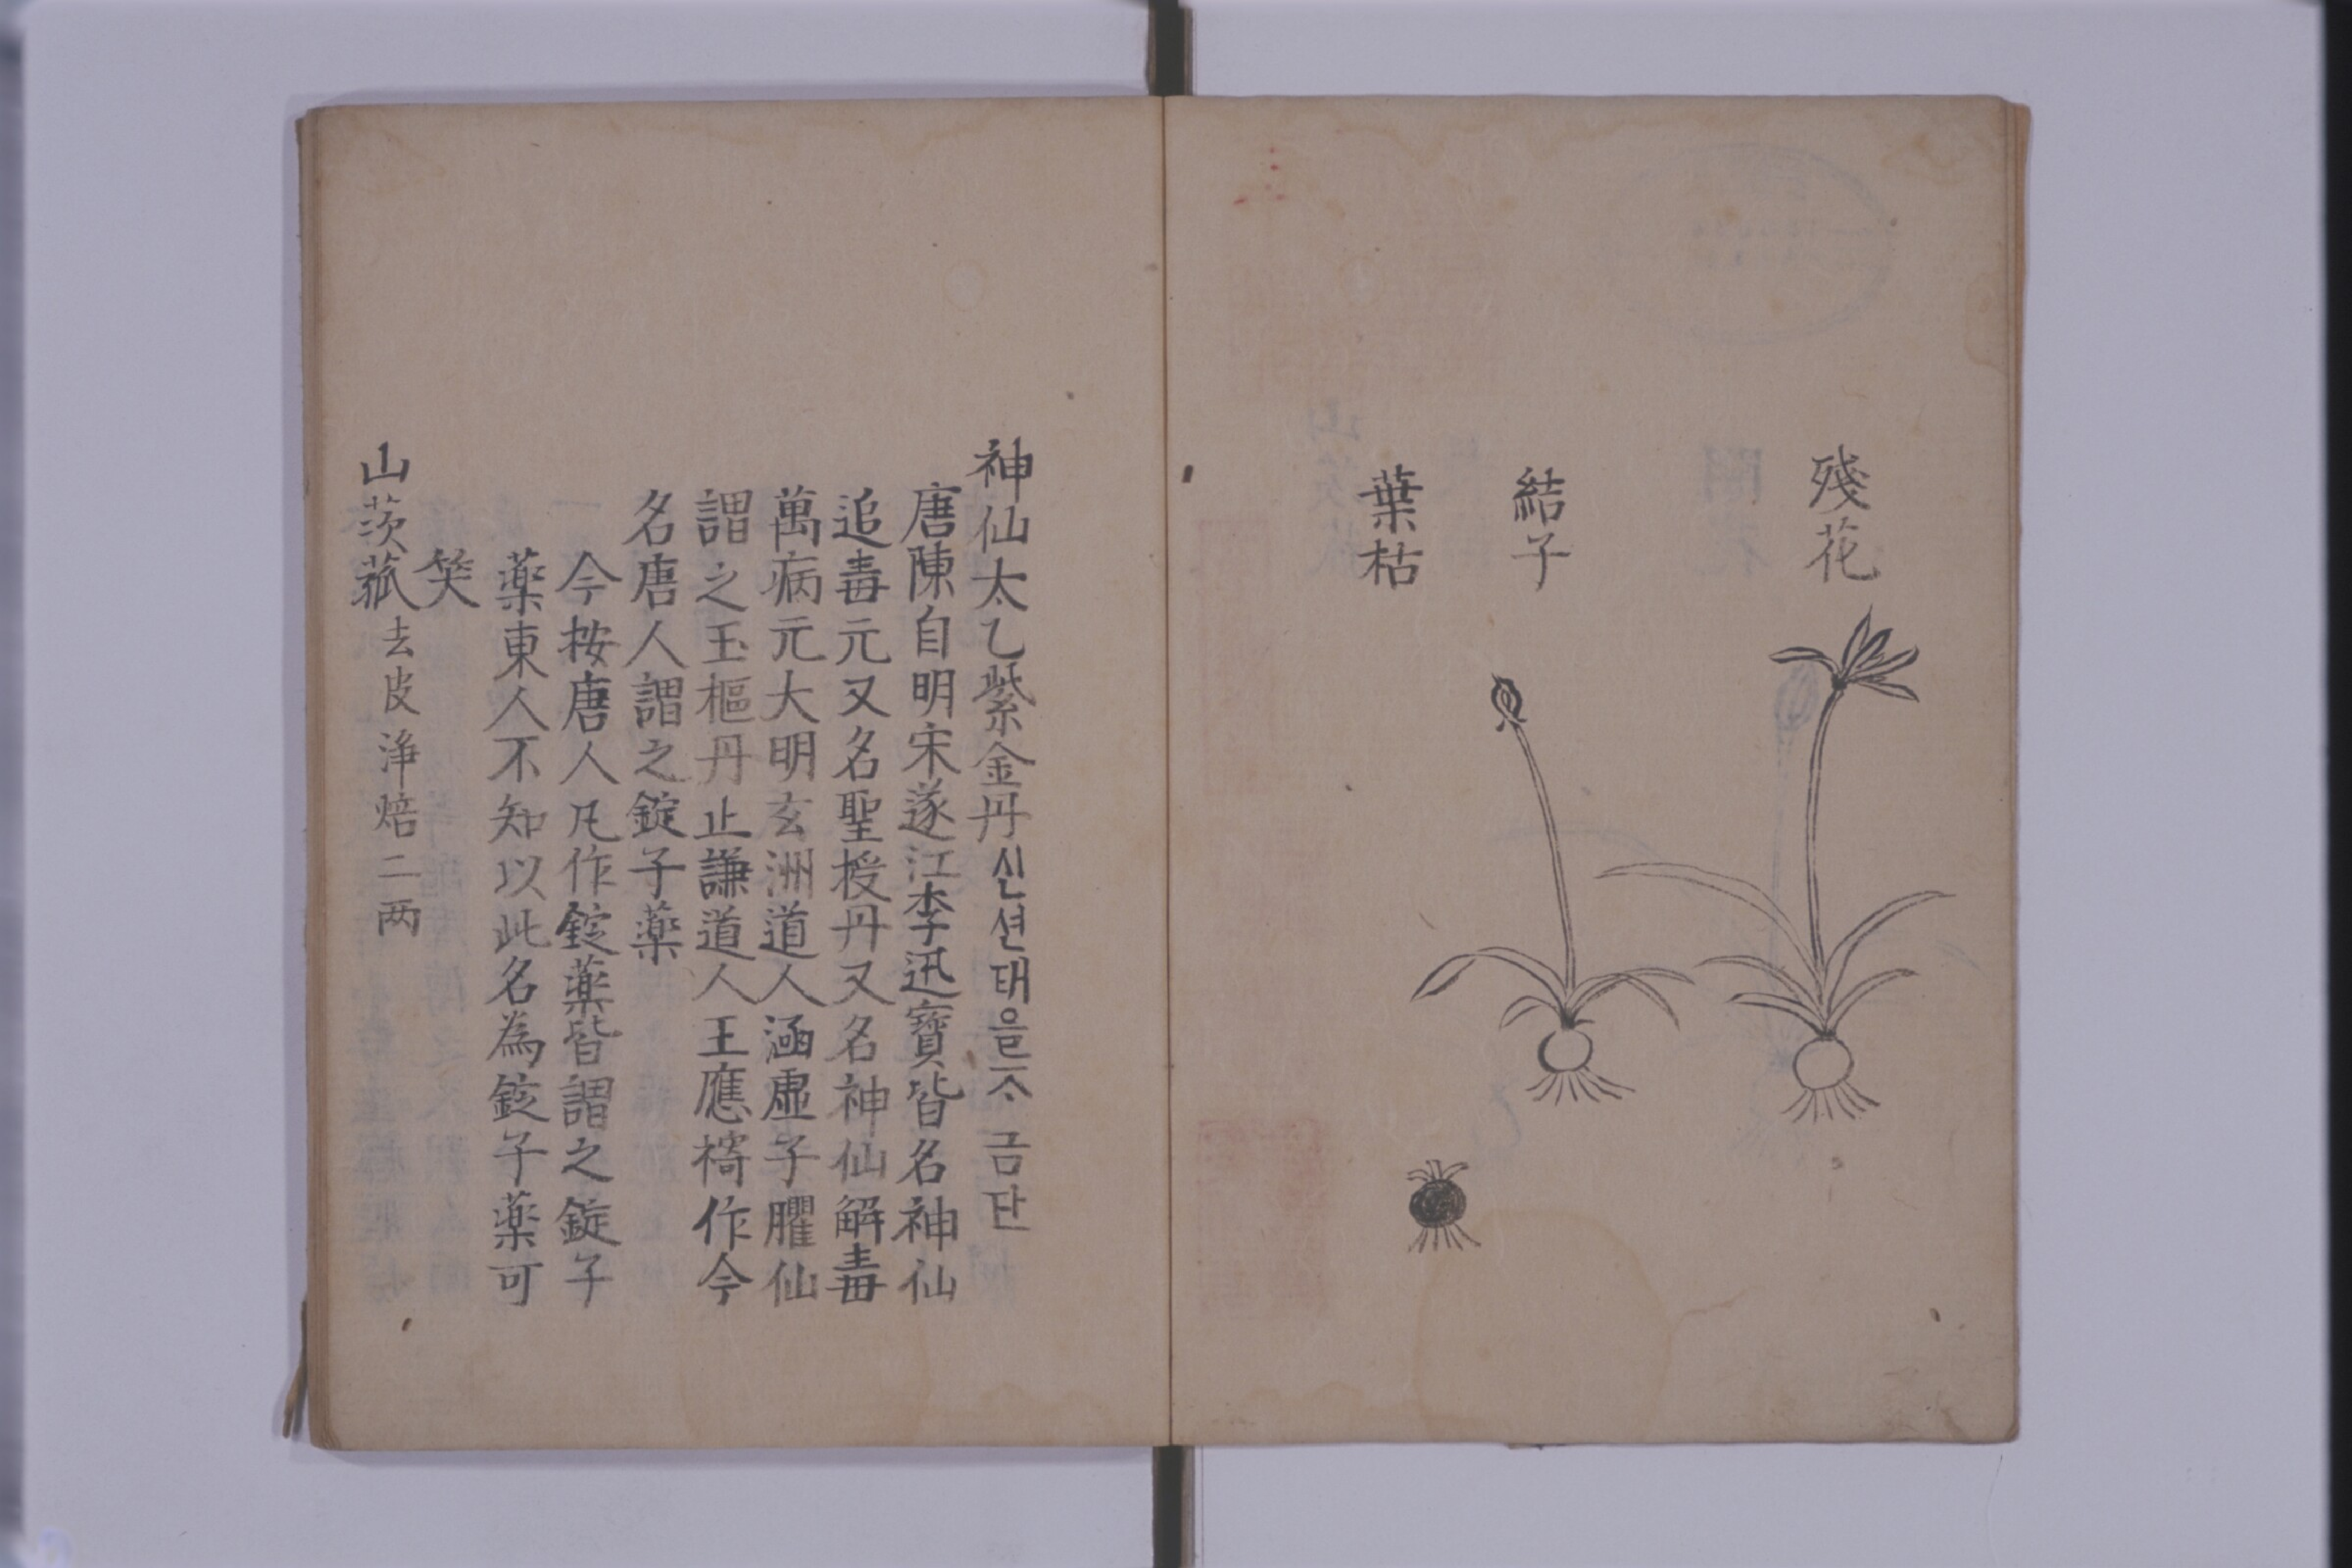 殘花
結子
葉枯
神仙太乙紫金丹신션태을ᄌᆞ금단
唐陳自明宋遂江李迅寶皆名神仙
追毒元又名聖授丹又名神仙解毒
萬病元大明玄洲道人涵虛子臞仙
謂之玉樞丹止謙道人王應樇作今
名唐人謂之錠子藥
今按唐人凡作錠藥皆謂之錠子
藥東人不知以此名為錠子藥可
笑
山茨菰去皮淨焙二两